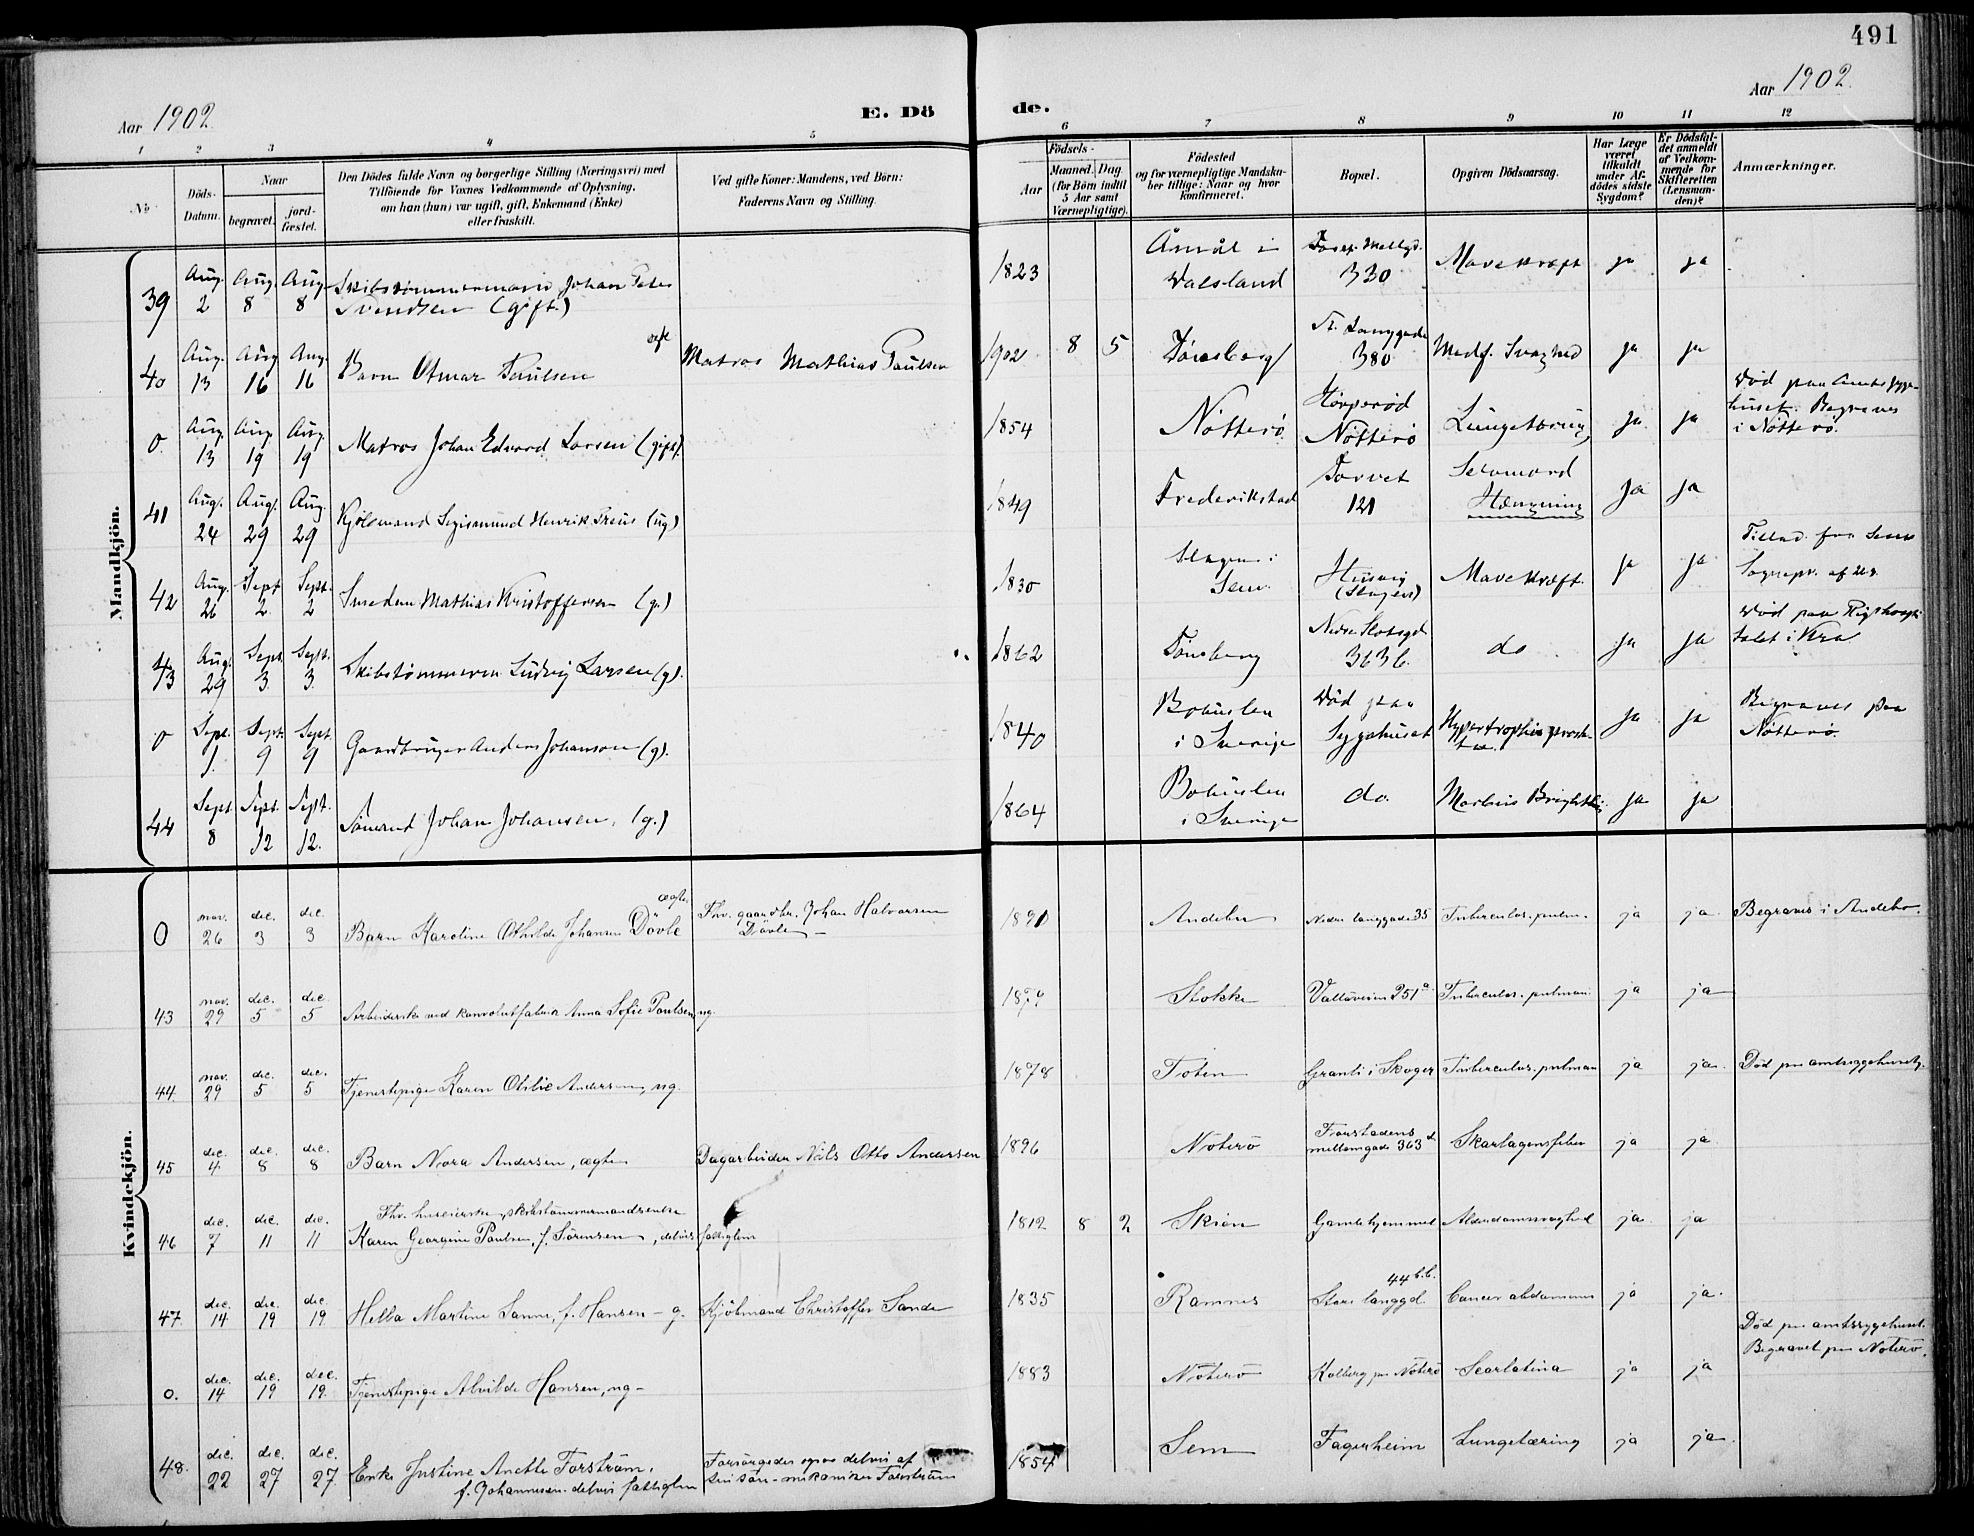 491
Aar 1902.
E. Dö
de.
Aar 1902.
1 2 3 4 5 6 7 8 9 10 11 12
No
Döds-
Datum.
Naar
begravet.
jord-
fæstet.
Den Dödes fulde Navn og borgerlige Stilling (Næringsvei) med
Tilföiende for Voxnes Vedkommende af Oplysning,
om han (hun) var ugift, gift, Enkemand (Enke)
eller fraskilt.
Ved gifte Koner: Mandens, ved Börn:
Faderens Navn og Stilling.
Födsels-
Aar
Maaned.
Dag
(for Börn indtil
5 Aar samt
Værnepligtige).
Födested
og for værnepligtige Mandska-
ber tillige: Naar og hvor
konfirmeret.
Bopæl.
Opgiven Dödsaarsag.
Har Læge
været
tilkaldt
under Af-
dödes sidste
Sygdom?
Er Dödsfal-
det anmeldt
af Vedkom-
mende for
Skifteretten
(Lensman-
den)?
Anmærkninger.
Mandkjön.
39 Aug. 2 Aug. 8 Aug. 8 Skibstømmermand Johan Peter
Svendsen (gift.)
1823 Åmål i
Dalsland 330 Mavekræft ja ja
40 Aug. 13 Aug 16 Aug. 16 Barn Otmar Paulsen ægte
Matros Mathias Paulsen
1902 8 5 Tønsberg St. Langgade
380 Medf. Svaghed ja ja
0. Aug. 13 Aug. 19 Aug. 19 Matros Johan Edvard Larsen (gift).
1854 Nøtterø
Nøtterø Ja ja
Død paa Amtssyge-
huset. Begraves
i Nøtterø.
41 Aug. 24 Aug. 29 Aug. 29 Kjøbmand Sigismund Henrik (ug)
1849 Frederikstad Torvet
121 Selvmord
Hængning Ja ja
42 Aug. 26 Sept 2 Sept. 2 Smeden Mathias Kristoffersen (g.)
1830 Slagen i
Sem. Husvig
(Slagen) Mavekræft. ja ja
43 Aug. 29 Sept. 3. Sept. 3. Ludvig Larsen (g).
1862 Tønsberg Nedre Slotsgd
363 b. do ja ja
Død paa Rigshospi-
talet i Kra
0 Sept. 1. Sept. 9 Sept. 9 Gaardbruger Anders Johanson (g).
1840 Bohuslen
i Sverige Død paa
Sygehuset ja ja
Begraves paa
Nøtterø.
44 Sept. 8 Sept. 12 Sept. 12. Sømand Johan Johansen. (g.)
1864 Bohuslen
i Sverige do. Morbus Brightii ja ja
Kvindekjön.
0 nov. 26 dec. 3 dec. 3 Barn Karoline Othilde Johansen Døvle ægte
Fhv. gaardbr. Johan Halvorsen
Døvle
Andebu Nedre langgade 35 Tuberculos. pulm. ja ja Begraves i Andebo.
43 nov. 29 dec. 5 dec. 5 Arbeiderske ved konvolutfabrik Anna Sofie Paulsen, ug.
Stokke Valløveien 251 a. Tuberculos. pulman. ja ja
44. nov. 29 dec. 5 dec. 5 Tjenestepige Karen Othilie Andersen, ug.
1878 Toten Granli i Skoger Tuberculos. pulman ja ja. Død pa amtssygehuset.
45 dec. 4 dec. 8 dec. 8 Barn Nora Andersen, ægte
Dagarbeider Nils Otto Andersen
1896 Nøterø Farstadens
mellemgade 363 d Skarlagensfeber ja ja
46 dec. 7 dec. 11 dec. 11 Fhv. huseierske, skibstømmermandsenke
Karen Georgine Paulsen, f. Sørensen, delvis fattiglem
1812 8 2 Skien Gamlehjemmet Alderdomssvaghed ja. ja
47. dec. 14 dec. 19 dec. 19 Helba Martine Sanne, f. Hansen - g.
Kjøbmand Christoffer Sande
1835 Ramnes 44 b.b.
Store langgd. Cancer abdominis ja ja.
0. dec. 14 dec. 19 dec. 19. Tjenestepige Alvilde Hansen, ug-
1883 Nøterø Kolberg pa Nøterø Scarlatina ja ja
Død pa amtssygehuset.
Begravet pa Nøterø.
48. dec. 22 dec. 27 dec. 27. Enke Justine Anette Forstrøm,
f. Johannesen - delvis fattiglem
Forsørgedes ogsaa delvis af
sin søn - mekaniker Forstrøm
1854 Sem Fagerheim Lungetæring ja ja.